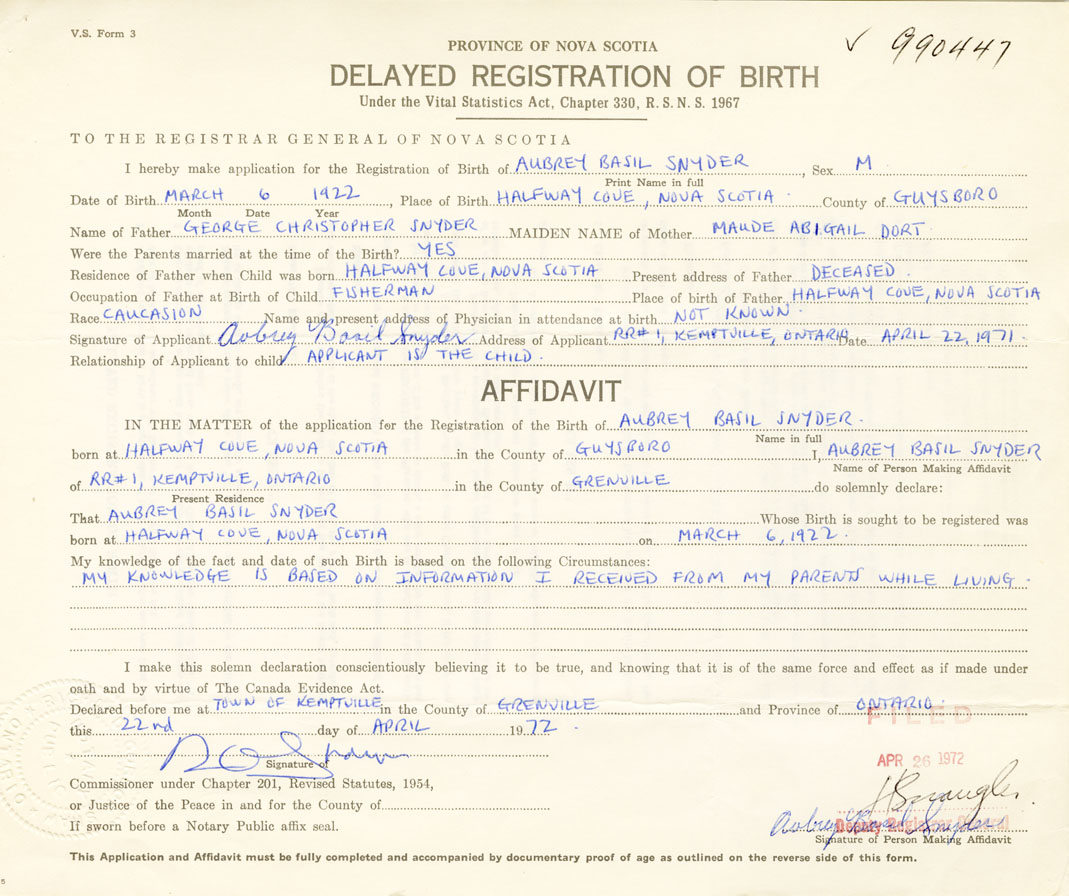 V.S. Form 3
✓ 990447
PROVINCE OF NOVA SCOTIA
DELAYED REGISTRATION OF BIRTH
Under the Vital Statistics Act, Chapter 330, R. S. N. S. 1967
TO THE REGISTRAR GENERAL OF NOVA SCOTIA
I hereby make application for the Registration of Birth of AUBREY BASIL SNYDER, Sex M
Print Name in full
Date of Birth MARCH 6 1922, Place of Birth HALFWAY COVE, NOVA SCOTIA. County of GUYSBORO
Month Date Year
Name of Father GEORGE CHRISTOPHER SNYDER MAIDEN NAME of Mother MAUDE ABIGAIL DORT
Were the Parents married at the time of the Birth? YES
Residence of Father when Child was born HALFWAY COVE, NOVA SCOTIA Present address of Father DECEASED.
Occupation of Father at Birth of Child FISHERMAN Place of birth of Father HALFWAY COVE, NOVA SCOTIA
Race CAUCASION Name and present address of Physician in attendance at birth NOT KNOWN.
Signature of Applicant Aubrey Basil Snyder Address of Applicant RR#1, KEMPTVILLE, ONTARIO Date APRIL 22, 1971.
Relationship of Applicant to child APPLICANT IS THE CHILD.
AFFIDAVIT
IN THE MATTER of the application for the Registration of the Birth of AUBREY BASIL SNYDER.
Name in full
born at HALFWAY COVE, NOVA SCOTIA in the County of GUYSBORO I, AUBREY BASIL SNYDER
Name of Person Making Affidavit
of RR#1, KEMPTVILLE, ONTARIO in the County of GRENVILLE do solemnly declare:
Present Residence
That AUBREY BASIL SNYDER Whose Birth is sought to be registered was
born at HALFWAY COVE, NOVA SCOTIA on MARCH 6, 1922.
My knowledge of the fact and date of such Birth is based on the following Circumstances:
MY KNOWLEDGE IS BASED ON INFORMATION I RECEIVED FROM MY PARENTS WHILE LIVING.
I make this solemn declaration conscientiously believing it to be true, and knowing that it is of the same force and effect as if made under
oath and by virtue of The Canada Evidence Act.
Declared before me at TOWN OF KEMPTVILLE in the County of GRENVILLE and Province of ONTARIO.
this 22nd day of APRIL 1972.
FILED
APR 26 1972
Signature of
Commissioner under Chapter 201, Revised Statutes, 1954,
or Justice of the Peace in and for the County of
If sworn before a Notary Public affix seal.
Deputy Registrar General
Aubrey Basil Snyder
Signature of Person Making Affidavit
This Application and Affidavit must be fully completed and accompanied by documentary proof of age as outlined on the reverse side of this form.
5